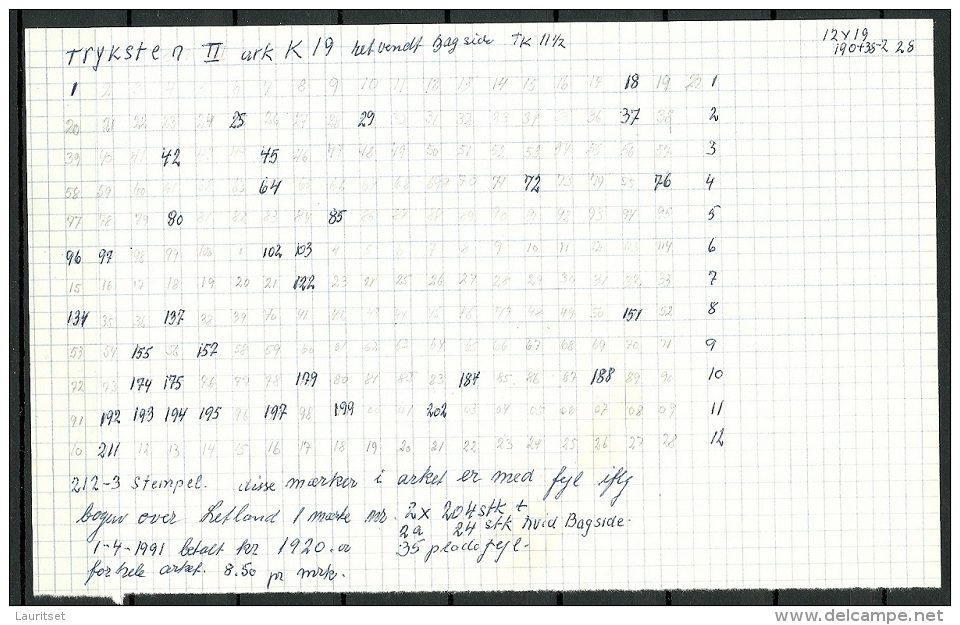 Tryksten II ark K 19 retvendt Bagside TK 11½
12 x 19
190+35-2 25
1 2 3 4 5 6 7 8 9 10 11 12 13 14 15 16 17 18 19 1
20 21 22 23 24 25 26 27 28 29 31 32 33 34 36 37 38 2
39 40 41 42 45 46 47 48 49 50 51 52 53 54 55 56 57 3
58 59 60 61 62 63 64 65 66 67 68 69 70 71 72 73 74 75 76 4
77 78 79 80 81 82 83 84 85 86 87 88 89 90 91 92 93 94 95 5
96 97 98 99 100 1 102 103 4 5 6 7 8 9 10 11 12 113 114 6
15 16 17 18 19 20 21 122 23 24 25 26 27 28 29 30 31 32 33 7
134 35 36 137 38 39 40 41 42 43 44 45 46 47 48 49 50 151 52 8
53 54 155 56 157 58 59 60 61 62 63 64 65 66 67 68 69 70 71 9
72 73 174 175 76 77 78 179 80 81 83 184 85 86 87 188 89 90 10
91 192 193 194 195 96 197 98 199 00 01 202 03 04 05 06 07 08 09 11
10 211 12 13 14 15 16 17 18 19 20 21 22 23 24 25 26 27 28 12
212-3 stempel. disse mærker i arket er med fejl iflg
bogen over Letland 1 mærke nr. 2 x 204 stk +
2a 24 stk hvid Bagside.
1-4-1991 betalt kr 1920.00 35 pladefejl.
for hele arket. 8.50 pr mrk.
Lauritset
delcampe.net